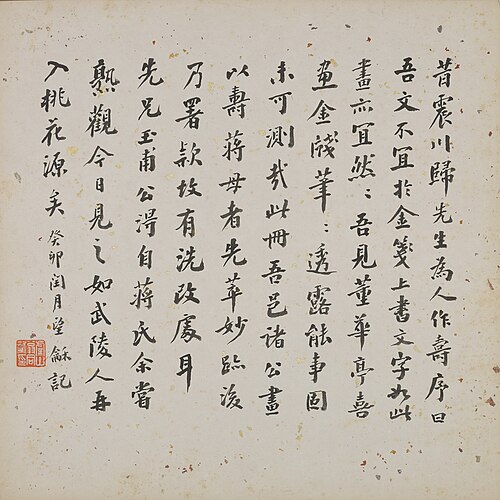 昔震川歸先生為人作壽序曰
吾文不宜於金箋上書文字如此
畫亦宜然〻吾見董華亭喜
畫金牋筆〻透露能事固
未可測哉此冊吾邑諸公畫
以壽蔣母者先萃妙跡後
乃署款故有洗改處耳
先兄玉甫公得自蔣氏余嘗
熟觀今日見之如武陵人再
入桃花源矣 癸卯閏月龢記